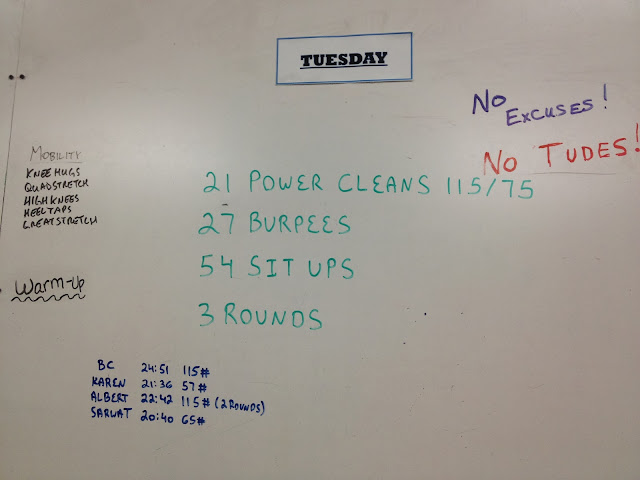 TUESDAY
No
Excuses!
No TUDES!
MOBILITY
KNEE HUGS
QUADSTRETCH
HIGH KNEES
HEELTAPS
GREATSTRETCH
WARM-UP
21 POWER CLEANS 115/75
27 BURPEES
54 SIT UPS
3 ROUNDS
BC 24:51 115#
KAREN 21:36 57#
ALBERT 22:42 115# (2 ROUNDS)
SARWAT 20:40 65#